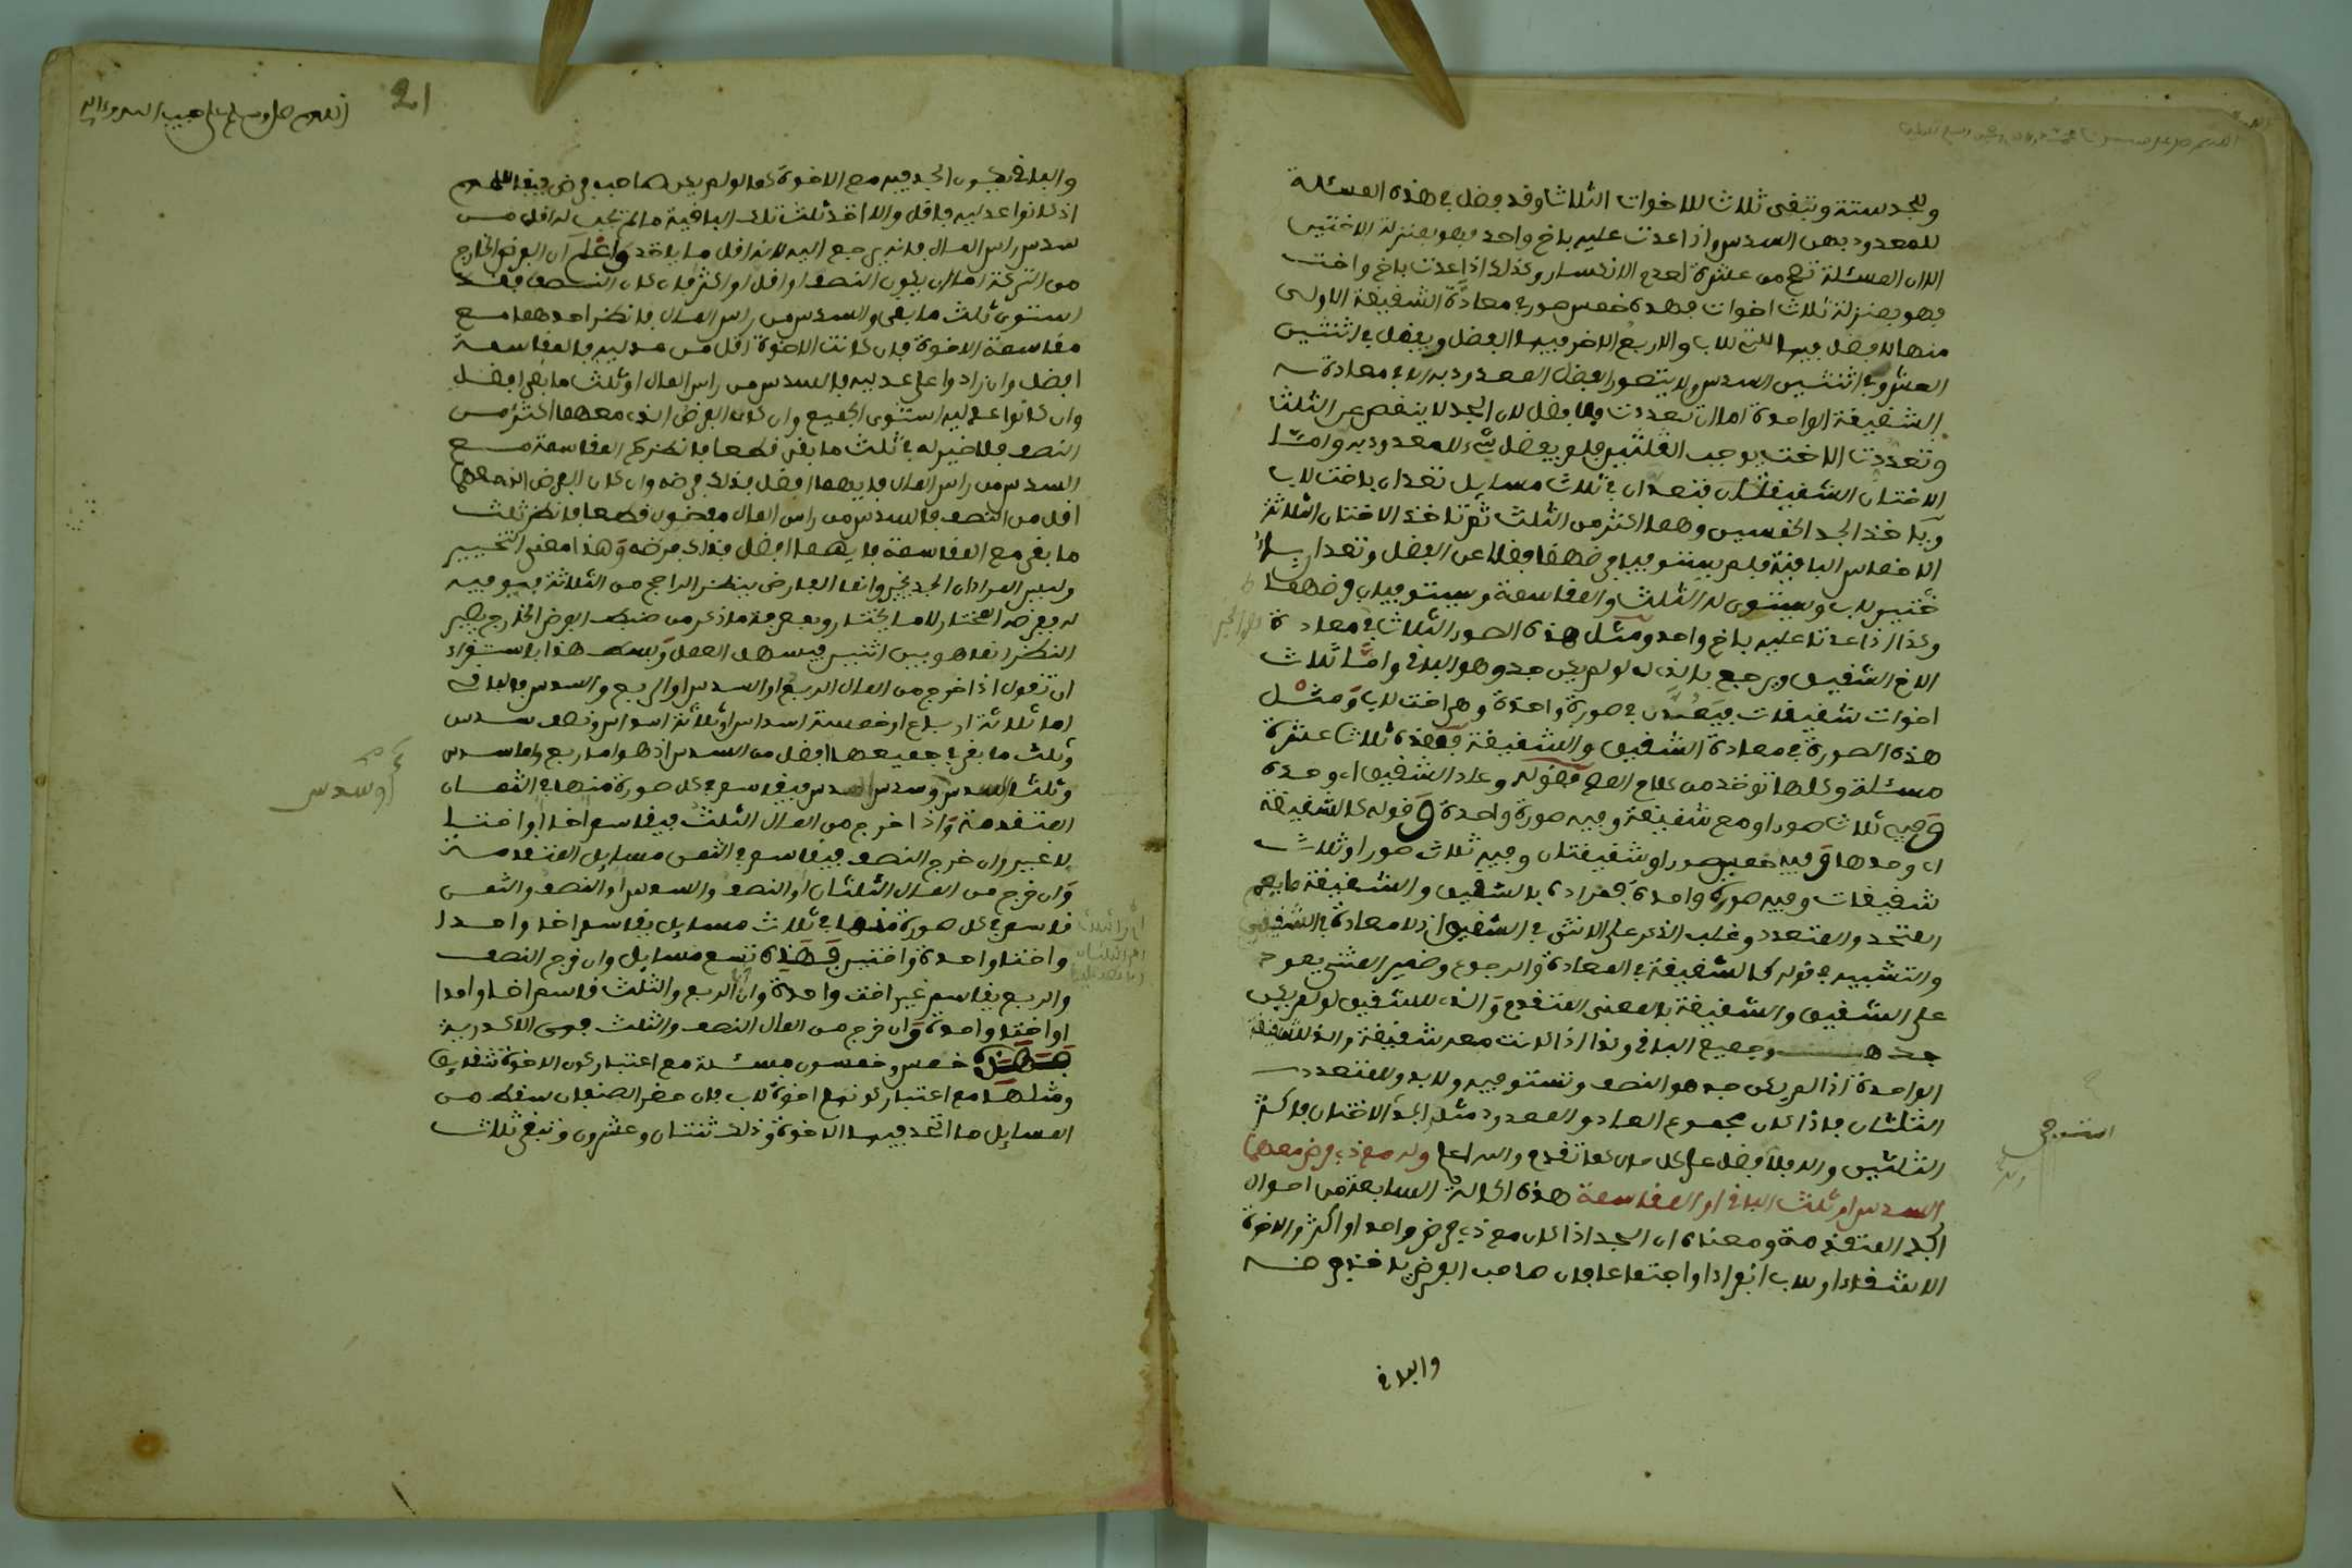 وللجد ستة وتبقى ثلاث للاخوات الثلاث وقد فضل في هذه المسئلة
للمعدود بهن السدس واذا عدت عليه باخ واحد فهو بمنزلة الاختين
الا ان المسئلة تصح من عشرة لعدم الانكسار وكذلك اذا عدت باخ واخت
فهو بمنزلة ثلاث اخوات فهذه خمس صور في معادة الشقيقة الاولى
منها لا يفضل فيها للتي للاب والاربع الاخر فيها الفضل ويفضل في اثنتين
العشر وفي اثنتين السدس ولا يتصور الفضل للمعدود به الا في معادة
الشقيقة الواحدة اما ان تعددت فلا فضل لان الجد لا ينقص عن الثلث
وتعدد الاخت يوجب الثلثين فلم يفضل شيء للمعدود به واما
الاختان الشقيقتان فتعدان في ثلاث مسايل تعدان باخت لاب
وياخذ الجد الخمسين وهما اكثر من الثلث ثم تاخذ الاختان الثلاثة
الاخماس الباقية فلم يستوفيا فرضهما فضلا عن الفضل وتعدان با
ختين لاب ويستوي له الثلث والمقاسمة ويستوفيان فرضهما
وكذا اذا عدتا عليه باخ واحد ومثل هذه الصور الثلاث في معادة
الاخ الشقيق ويرجع بالذي له لو لم يكن جد وهو الباقي واما ثلاث
اخوات شقيقات فيعددن في صورة واحدة وهي اخت لاب ومثل
هذه الصورة في معادة الشقيق والشقيقة فهذه ثلاث عشرة
مسئلة وكلها توخذ من كلام المص فقوله وعاد الشقيق اي وحده
وفيه ثلاث صور او مع شقيقة وفيه صورة واحدة وقوله كالشقيقة
اي وحدها وفيه خمس صور او شقيقتان وفيه ثلاث صور او ثلاث
شقيقات وفيه صورة واحدة فمراده بالشقيق والشقيقة ما يعم
المتحد والمتعدد وغلب الذكر على الانثى في الشقيق اذ لا معادة في الشقيق
والتشبيه في قوله كالشقيقة في المعادة والرجوع وضمير المثنى يعود
على الشقيق والشقيقة بالمعنى المتقدم والذي للشقيق لو لم يكن
جد هو جميع الباقي وكذا اذا كانت معه شقيقة والذي للشقيقة
الواحدة اذا لم يكن جد هو النصف وتستوفيه ولا بد وللمتعدد
الثلثان فاذا كان مجموع العاد والمعدود مثل الجد الاختان فاكثر
الثلثين والا فلا فضل على كل حال كما تقدم والله اعلم وله مع ذي فرض معهما
السدس او ثلث الباقي او المقاسمة هذه الحالة السابعة من احوال
الجد المتقدمة ومعناه ان الجد اذا كان مع ذي فرض واحد او اكثر والاخوة
الاشقاء او للاب انفرادا او اجتماعا فان صاحب الفرض ياخذ فرضه
والباقي
21
اللهم صل وسلم على حبيب الله وءاله
والباقي يكون الجد فيه مع الاخوة كما لو لم يكن صاحب فرض فيقاسمهم
اذ كانوا عدليه فاقل والا اخذ ثلث تلك الباقية ما لم تجب له اقل من
سدس راس المال فانه يرجع اليه لانه اقل ما ياخذ واعلم ان الفرض الخارج
من التركة اما ان يكون النصف او اقل او اكثر فان كان النصف فقد
استوى ثلث ما بقي والسدس من راس المال فانظر احدهما مع
مقاسمة الاخوة فان كانت الاخوة اقل من عدليه فالمقاسمة
افضل وان زادوا على عدليه فالسدس من راس المال او ثلث ما بقي افضل
وان كانوا عدليه استوى الجميع وان كان الفرض الذي معهما اكثر من
النصف فلا خير له في ثلث ما بقي قطعا فانظر له المقاسمة مع
السدس من راس المال فايهما افضل فذلك فرضه وان كان الفرض الذي معهما
اقل من النصف فالسدس من راس المال مفضول قطعا فانظر ثلث
ما بقي مع المقاسمة فايهما افضل فذلك فرضه وهذا معنى التخيير
وليس المراد ان الجد يخير وانما الفارض ينظر الراجح من الثلاثة فيوفيه
له فيفرضه المختار لا ما يختار وبمعرفة ما ذكر من ضبط الفرض الخارج يصير
النظر انما هو بين اثنين فيسهل العمل وبسط هذا بالاستقراء
ان تقول اذا خرج من المال الربع او السدس او الربع والسدس فالباقي
اما ثلاثة ارباع او خمسة اسداس او ثلاثة اسداس ونصف سدس
وثلث ما بقي في جميعها افضل من السدس اذ هو اما ربع واما سدس
وثلثا السدس وسدس السدس فيقاسم في كل صورة منها في الثمان
المتقدمة واذا خرج من المال الثلث فيقاسم اخا او اختا
لا غير وان خرج النصف فيقاسم في الخمس مسايل المتقدمة
وان خرج من المال الثلثان او النصف والسدس او النصف والثمن
قاسم في كل صورة منها في ثلاث مسايل يقاسم اخا واحدا
واختا واحدة واختين فهذه تسع مسايل وان خرج النصف
والربع يقاسم غير اخت واحدة وان الربع والثلث قاسم اخا واحدا
او اختا واحدة وان خرج من المال النصف والثلث فهي الاكدرية
فهذه خمس وخمسون مسئلة مع اعتبار كون الاخوة شقايق
ومثلها مع اعتبار كونهم اخوة لاب فان حضر الصنفان سقط من
المسايل ما اتحد فيها الاخوة وذلك ثنتان وعشرون وتبقى ثلاث
او سدس